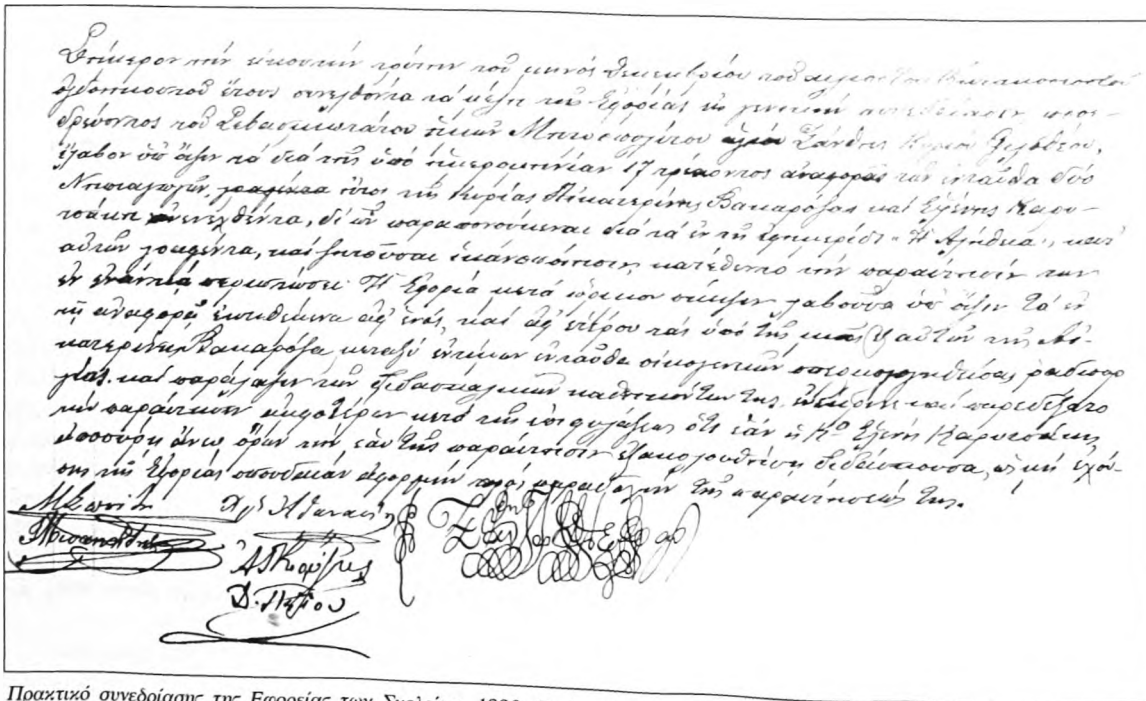 Σήμερον τὴν εἰκοστὴν τρίτην τοῦ μηνὸς Δεκεμβρίου τοῦ
ὀγδοηκοστοῦ ἔτους συνελθόντα τὰ μέλη τῆς Ἐφορίας εἰς γενικὴν συνεδρίασιν, προε-
δρεύοντος τοῦ Σεβασμιωτάτου ἡμῶν Μητροπολίτου ἁγίου Ξάνθης Κυρίου
ἔλαβον ὑπ' ὄψιν τὰ διὰ τῆς ὑπὸ ἡμερομηνίαν 17 τρέχοντος ἀναφορᾶς τῶν ἐνταῦθα δύο
Νηπιαγωγῶν, ἤτοι τῆς Κυρίας Αἰκατερίνης Βακαρόζα καὶ Ἑλένης Καρυ-
τσάκη ἀνενεχθέντα, δι' ὧν παραπονούμεναι διὰ τὰ ἐν τῇ ἐφημερίδι "Ἡ Ἀλήθεια", κατ'
αὐτῶν γραφέντα, καὶ ζητοῦσαι ἱκανοποίησιν, κατέθεντο τὴν παραίτησίν των
ἐν ἐναντίᾳ περιπτώσει. Ἡ Ἐφορία μετὰ ὥριμον σκέψιν λαβοῦσα ὑπ' ὄψιν τὰ ἐν
τῇ ἀναφορᾷ ἐκτιθέμενα ἀφ' ἑνός, καὶ ἀφ' ἑτέρου τὰς ὑπὸ τῆς μιᾶς ἐξ αὐτῶν τῆς Αἰ-
κατερίνης Βακαρόζα μεταξὺ ἐντίμων ἐνταῦθα οἰκογενειῶν ῥᾳδιουρ-
γίας, καὶ παράλειψιν τῶν διδασκαλικῶν καθηκόντων της, ἐνέκρινε καὶ παρεδέξατο
τὴν παραίτησιν ἀμφοτέρων μετὰ τῆς ἐπιφυλάξεως ὅτι ἐὰν ἡ Κα Ἑλένη Καρυτσάκη
ἀποσύρῃ ἄνευ ὅρων τὴν ἑαυτῆς παραίτησιν ἐξακολουθήσῃ διδάσκουσα, ὡς μὴ ἐχού-
σης τῆς Ἐφορίας σπουδαίαν ἀφορμὴν πρὸς παραδοχὴν τῆς παραιτήσεώς της.
Δ.
Πρακτικό συνεδρίασης της Εφορείας των